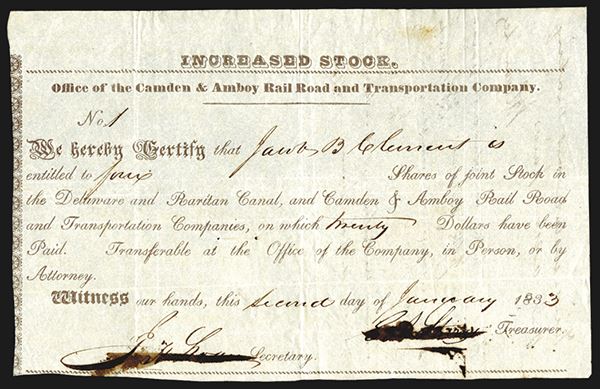 INCREASED STOCK.
Office of the Camden & Amboy Rail Road and Transportation Company.
No. 1
We hereby Certify that Jacob B Clement is
entitled to four Shares of joint Stock in
the Delaware and Raritan Canal, and Camden & Amboy Rail Road
and Transportation Companies, on which twenty Dollars have been
Paid. Transferable at the Office of the Company, in Person, or by
Attorney.
Witness our hands, this second day of January 1833
Treasurer.
Secretary.